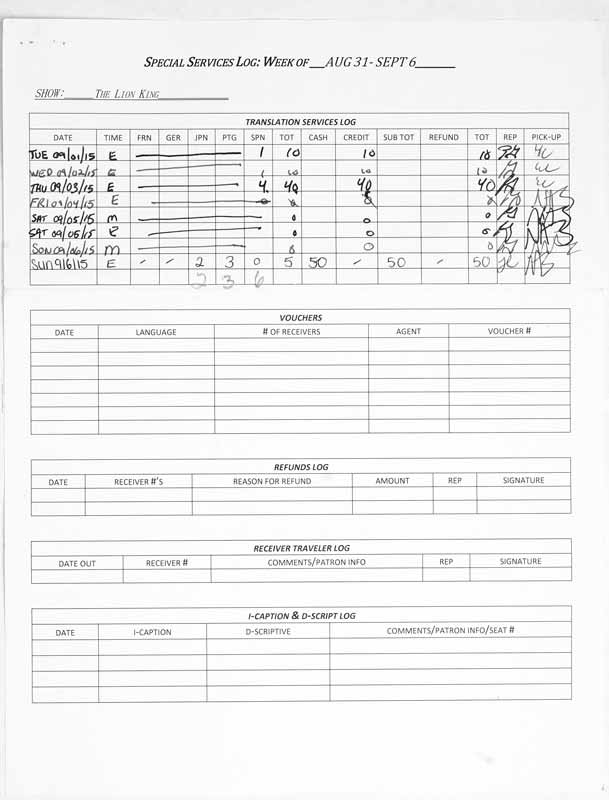 SPECIAL SERVICES LOG: WEEK OF __AUG 31- SEPT 6______
SHOW:______THE LION KING______________
TRANSLATION SERVICES LOG
DATE TIME FRN GER JPN PTG SPN TOT CASH CREDIT SUB TOT REFUND TOT REP PICK-UP
TUE 09/01/15 E 1 10 10 10
WED 09/02/15 E 1 10 10 10
THU 09/03/15 E 4 40 40 40
FRI 09/04/15 E
SAT 09/05/15 M 0 0 0
SAT 09/05/15 E 0 0 0
SUN 09/06/15 M 0 0 0
SUN 9/6/15 E - - 2 3 0 5 50 - 50 - 50
2 3 6
VOUCHERS
DATE LANGUAGE # OF RECEIVERS AGENT VOUCHER #
REFUNDS LOG
DATE RECEIVER #'S REASON FOR REFUND AMOUNT REP SIGNATURE
RECEIVER TRAVELER LOG
DATE OUT RECEIVER # COMMENTS/PATRON INFO REP SIGNATURE
I-CAPTION & D-SCRIPT LOG
DATE I-CAPTION D-SCRIPTIVE COMMENTS/PATRON INFO/SEAT #